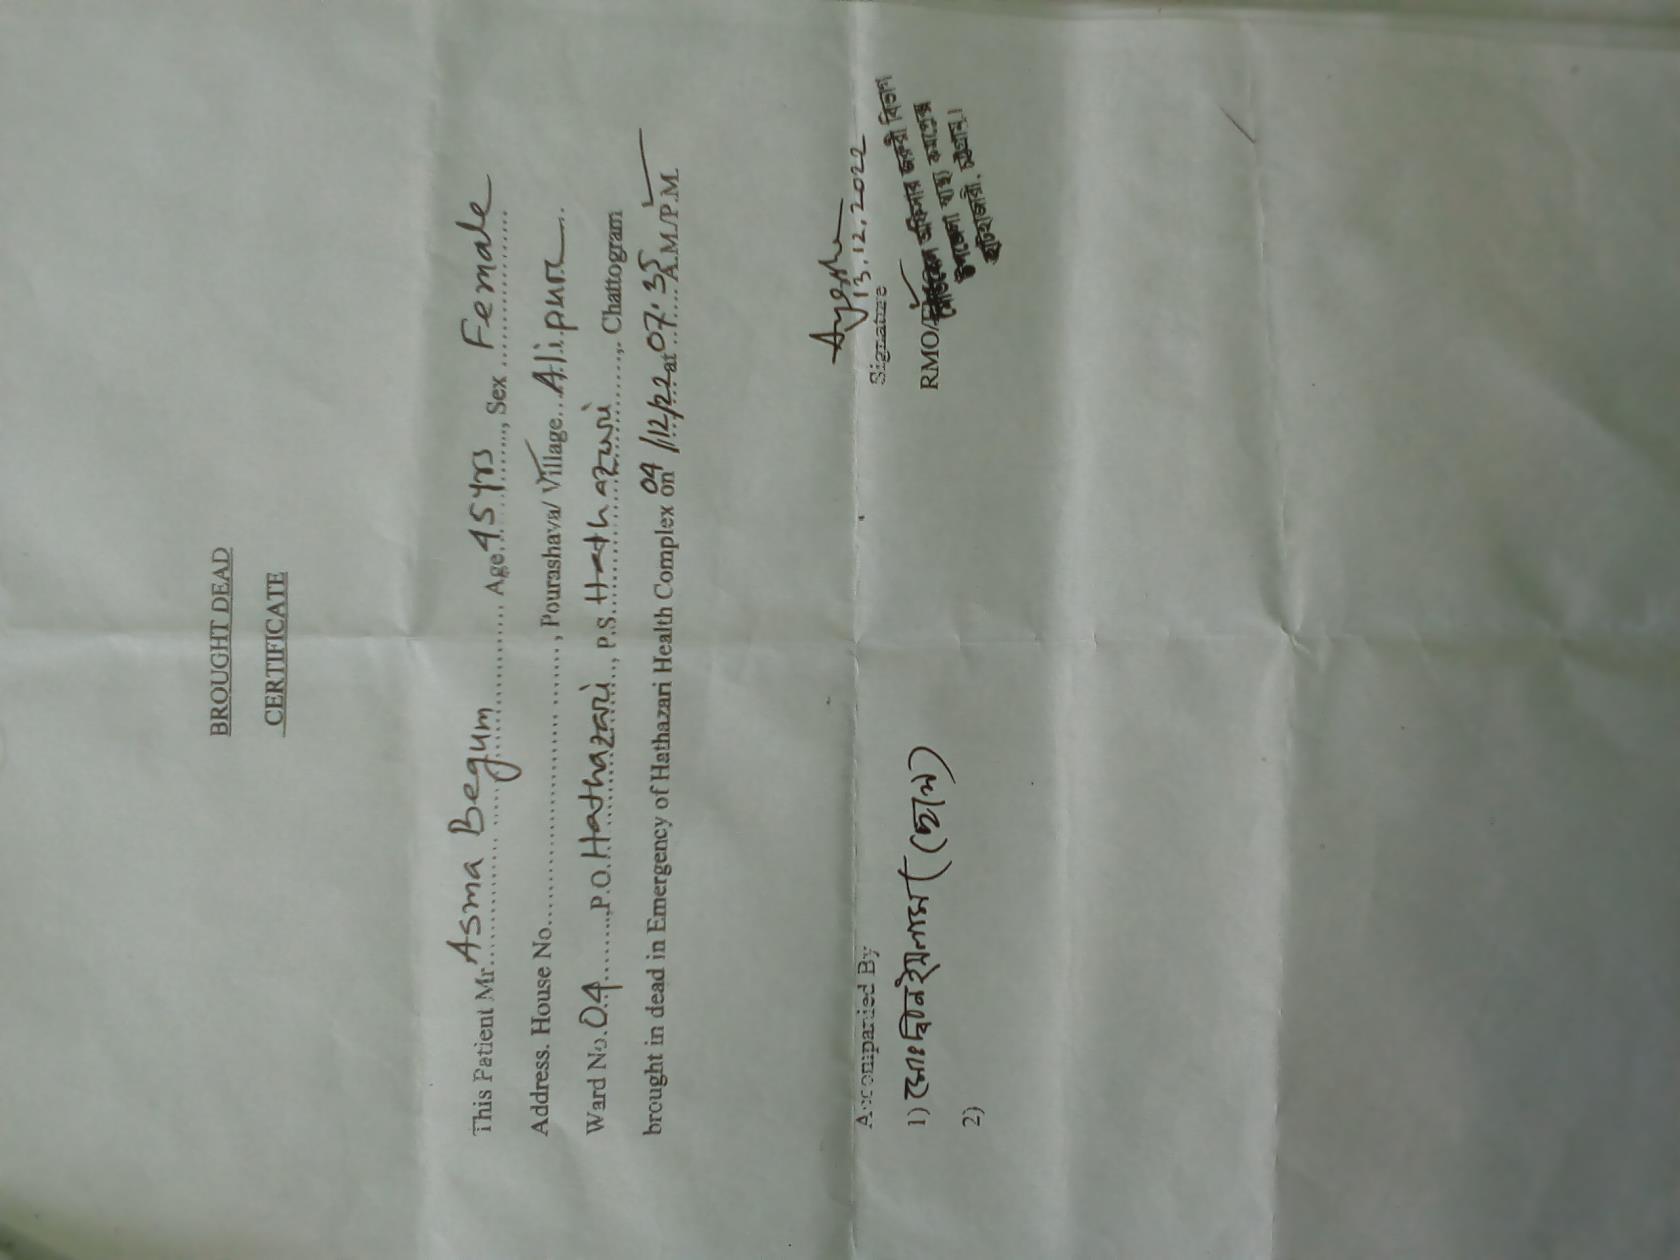 BROUGHT DEAD
CERTIFICATE
This Patient Mr. Asma Begum Age 45 yrs, Sex Female
Address. House No. , Pourashava/ Village. Alipur.
Ward No. 04, P.O. Hathazari, P.S. Hathazari, Chattogram
brought in dead in Emergency of Hathazari Health Complex on 04/12/22 at 07.35 A.M./P.M.
13.12.2022
Signature
RMO/
মেডিকেল অফিসার জরুরী বিভাগ
উপজেলা স্বাস্থ্য কমপ্লেক্স
হাটহাজারী, চট্টগ্রাম।
Accompanied By
1) মোঃ
2)